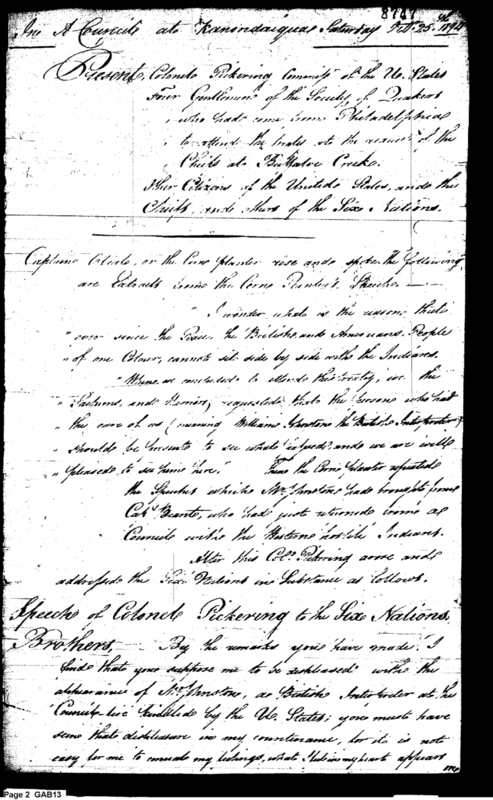 8747
In A Council at Kanondaigua Saturday Oct. 25th 1794
Present, Colonel Pickering Commiss.r of the U. States
Four Gentlemen of the Society of Quakers
who had come from Philadelphia
to attend the treaty at the request of the
Chiefs at Buffaloe Creek.
Other Citizens of the United States, and the
Chiefs, and others of the Six Nations.
Captain Obiele, or the Corn planter rose and spoke the following
are Extracts from the Corn Planter's Speech.
"I wonder what is the reason, that
" ever since the Peace, the British and Americans, People
" of one Colour, cannot sit side by side with the Indians.
" When we concluded to attend this treaty, we the
" Sachems, and Warriors, requested that the person who had
" the care of us (meaning William Johnstone the British Interpreter)
" should be present to see what passed, and we are well
" pleased to see him here." Then the Corn planter repeated
the Speeches which Mr. Johnstone had brought from
Capt. Brant, who had just returned from a
Council with the Western hostile Indians.
After this Col. Pickering arose and
addressed the Six Nations in Substance as follows.
Speech of Colonel Pickering to the Six Nations,
Brothers, By the remarks you have made, I
find that you suppose me to be displeased with the
appearance of Mr. Johnstone, a British Interpreter at the
Council fire kindled by the U. States; you must have
seen that displeasure in my countenance, for it is not
easy for me to conceal my feelings, what I feel in my heart appears
Page 2 GAB13